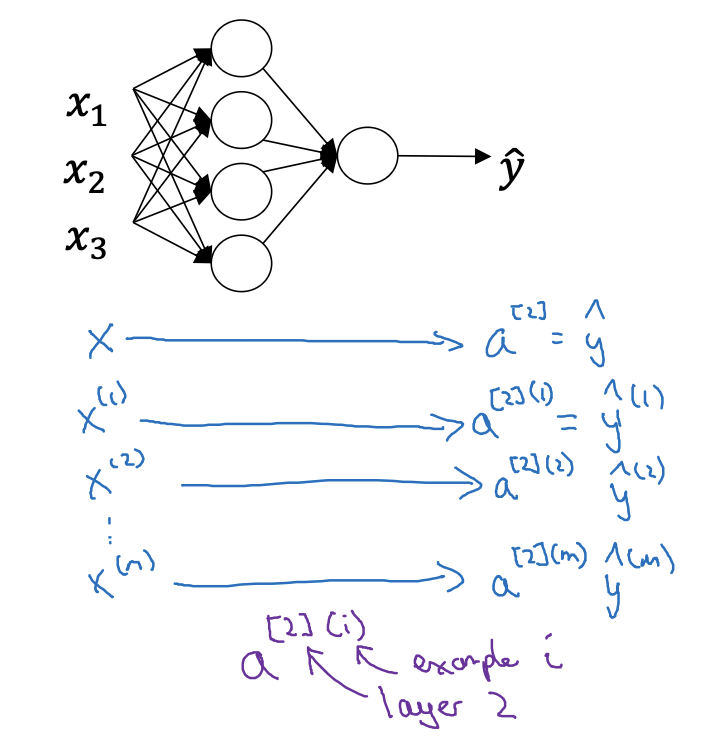 x₁
x₂ ŷ
x₃
x → a^[2] = ŷ
x^(1) → a^[2](1) = ŷ^(1)
x^(2) → a^[2](2) ŷ^(2)
⋮
x^(m) → a^[2](m) ŷ^(m)
a^[2](i)
example i
layer 2